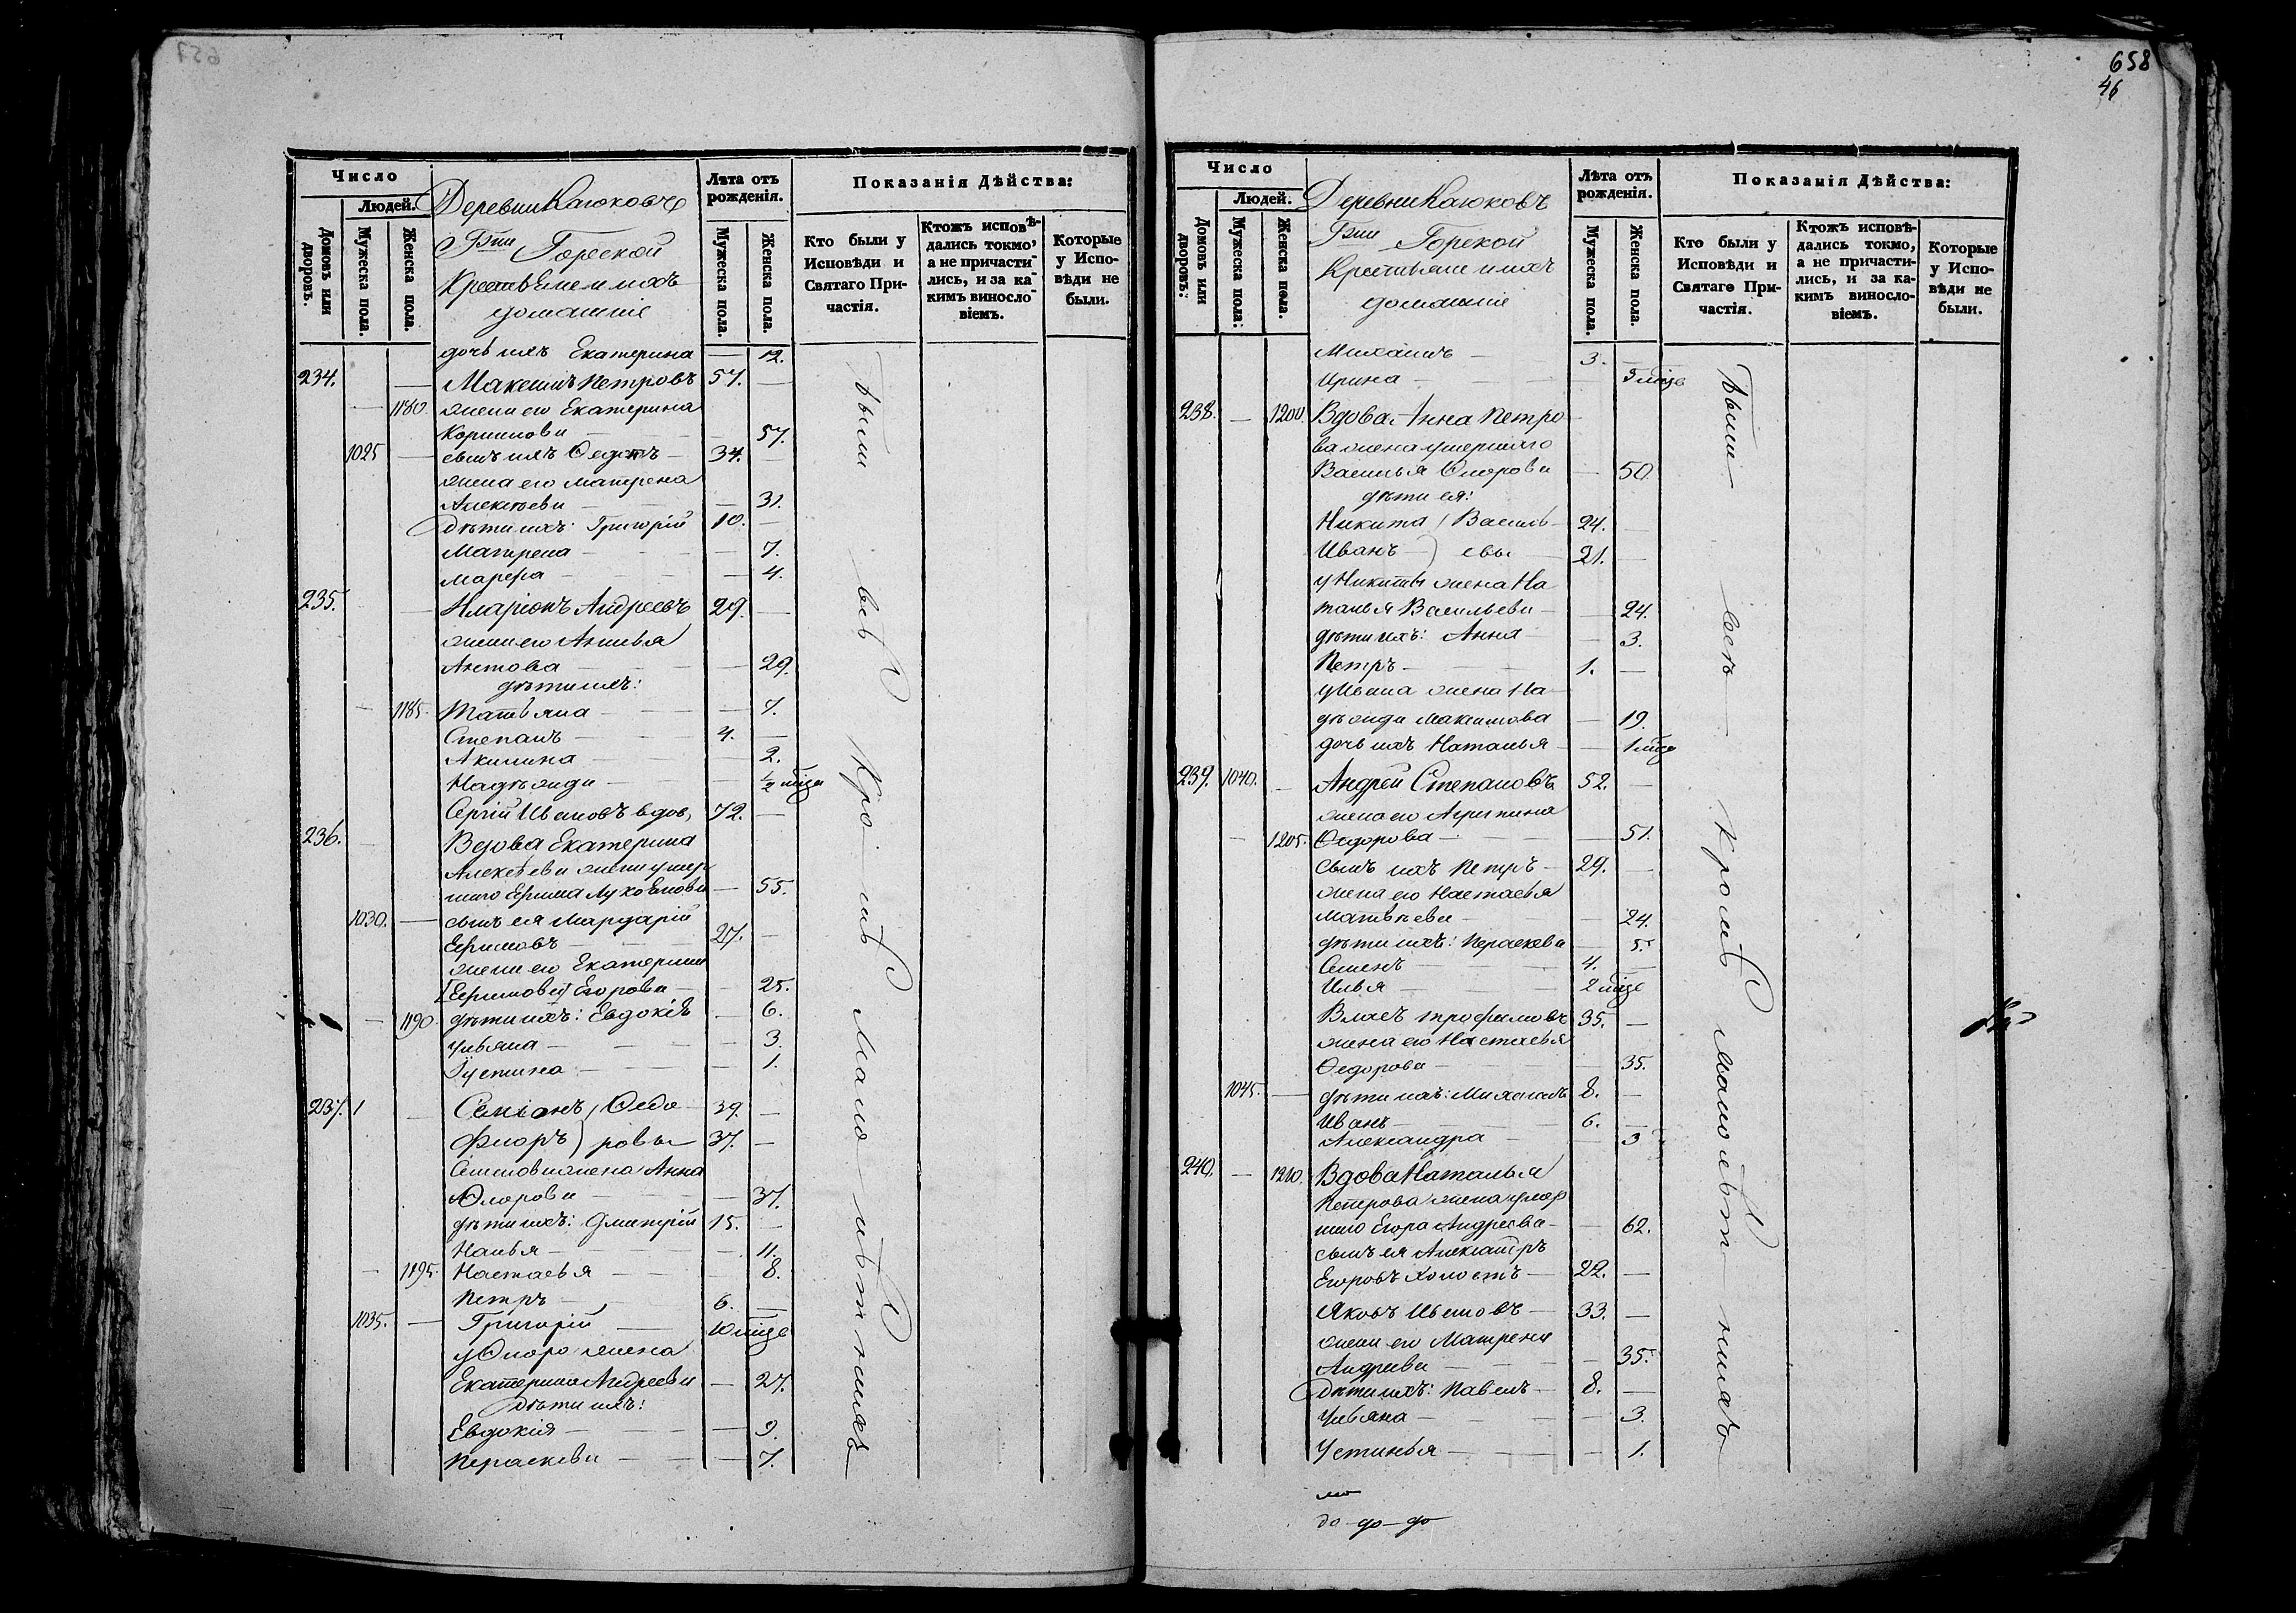 657
Число
Людей.
Домовъ или дворовъ.
Мужеска пола.
Женска пола.
Деревни Каюковъ
Гжи Горской
Крестьяне и ихъ
домашніе
Лѣта отъ рожденія.
Мужеска пола.
Женска пола.
Показанія Дѣйства:
Кто были у Исповѣди и Святаго Причастія.
Ктожъ исповѣдались токмо, а не причастились, и за какимъ винословіемъ.
Которые у Исповѣди не были.
дочь ихъ Екатерина — 12.
234. — Максимъ Петровъ 57. —
— 1180. жена его Екатерина
Корнилова — 57.
1025 — сынъ ихъ Ѳедотъ — 34.
жена его Матрена
Алексѣева — 31.
дѣти ихъ: Григорій 10. —
Матрена — 7.
Марѳа — 4.
235. — Иларіонъ Андреевъ 29. —
жена его Анисья
Антова — 29.
дѣти ихъ:
— 1185. Татьяна — 7.
Степанъ — 4. —
Акилина — 2.
Надѣжда — ½ мѣся
Сергій Ивановъ вдов. 72. —
236. Вдова Екатерина
Алексѣева жена умер
шаго Ефима Лукоянова — 55.
1030. — сынъ ея Мардарій
Ефимовъ — 27. —
жена его Екатерина
[Ефимова] Егорова — 25.
— 1190. дѣти ихъ: Евдокія — 6.
Ульяна — 3
Густина — 1.
237. 1 — Симіонъ ) Ѳедо 39. —
Флоръ ) ровы 37. —
Симіонова жена Анна
Флорова — 37.
дѣти ихъ: Дмитрій 15. —
Наталья — 11.
— 1195. Настасья — 8.
Петръ — 6. —
1035. — Григорій — 10 мѣся
у Флора жена
Екатерина Андреева — 27.
дѣти ихъ:
Евдокія — 9.
Параскева — 7.
Были всѣ Кромѣ малолѣтнихъ
658
46
Число
Людей.
Домовъ или дворовъ.
Мужеска пола.
Женска пола.
Деревни Каюковъ
Гжи Горской
Крестьяне и ихъ
домашніе
Лѣта отъ рожденія.
Мужеска пола.
Женска пола.
Показанія Дѣйства:
Кто были у Исповѣди и Святаго Причастія.
Ктожъ исповѣдались токмо, а не причастились, и за какимъ винословіемъ.
Которые у Исповѣди не были.
Михаилъ — 3. —
Ирина — 5 мѣся
238. — 1200. Вдова Анна Петро
ва жена умершаго
Василья Флорова — 50.
дѣти ея:
Никита ) Василь 24. —
Иванъ ) евы 21. —
у Никиты жена На
талья Васильева — 24.
дѣти ихъ: Анна — 3.
Петръ — 1. —
у Ивана жена На
дѣжда Максимова — 19.
дочь ихъ Наталья — 1 мѣся
239. 1040. — Андрей Степановъ 52. —
жена его Агрипина
— 1205. Ѳедорова — 51.
сынъ ихъ Петръ — 29. —
жена его Настасья
Матвѣева — 24.
дѣти ихъ: Параскева — 5.
Семенъ — 4. —
Илья — 2 мѣся
Власъ Трофимовъ 35. —
жена его Настасья
Ѳедорова — 35.
1045. — дѣти ихъ: Михаилъ 8. —
Иванъ — 6. —
Александра — 3
240. — 1210. Вдова Наталья
Петрова жена умер
шаго Егора Андреева — 62.
сынъ ея Александръ
Егоровъ холостъ — 22. —
Яковъ Ивановъ — 33. —
жена его Матрена
Андреева — 35.
дѣти ихъ: Павелъ — 8. —
Ульяна — 3.
Устинья — 1.
Были всѣ Кромѣ малолѣтнихъ
до-до-до